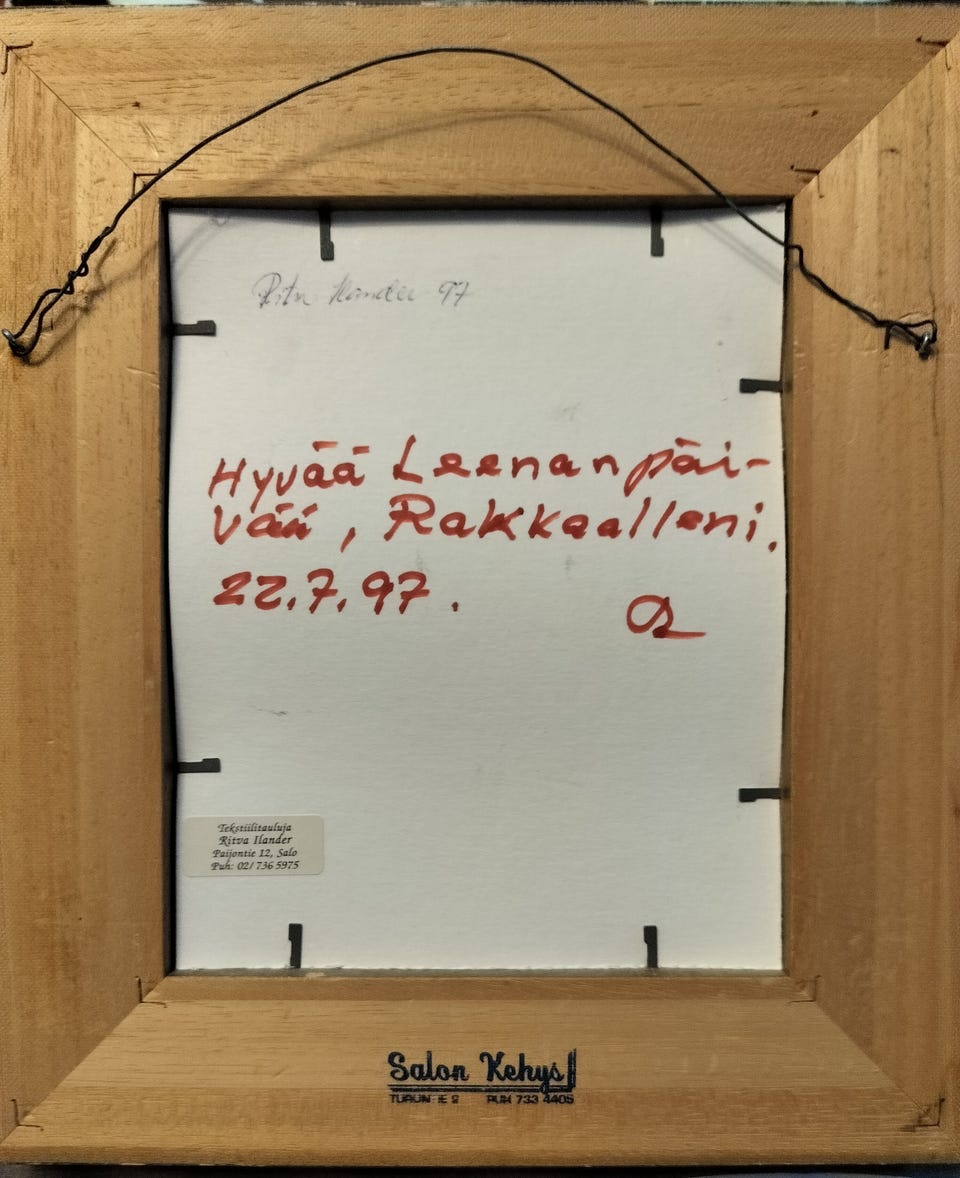 Ritva Ilander 97
Hyvää Leenanpäi-
vää, Rakkaalleni.
22.7.97.
Tekstiilitauluja
Ritva Ilander
Paijontie 12, Salo
Puh: 02/ 736 5975
Salon Kehys
PUH 733 4405